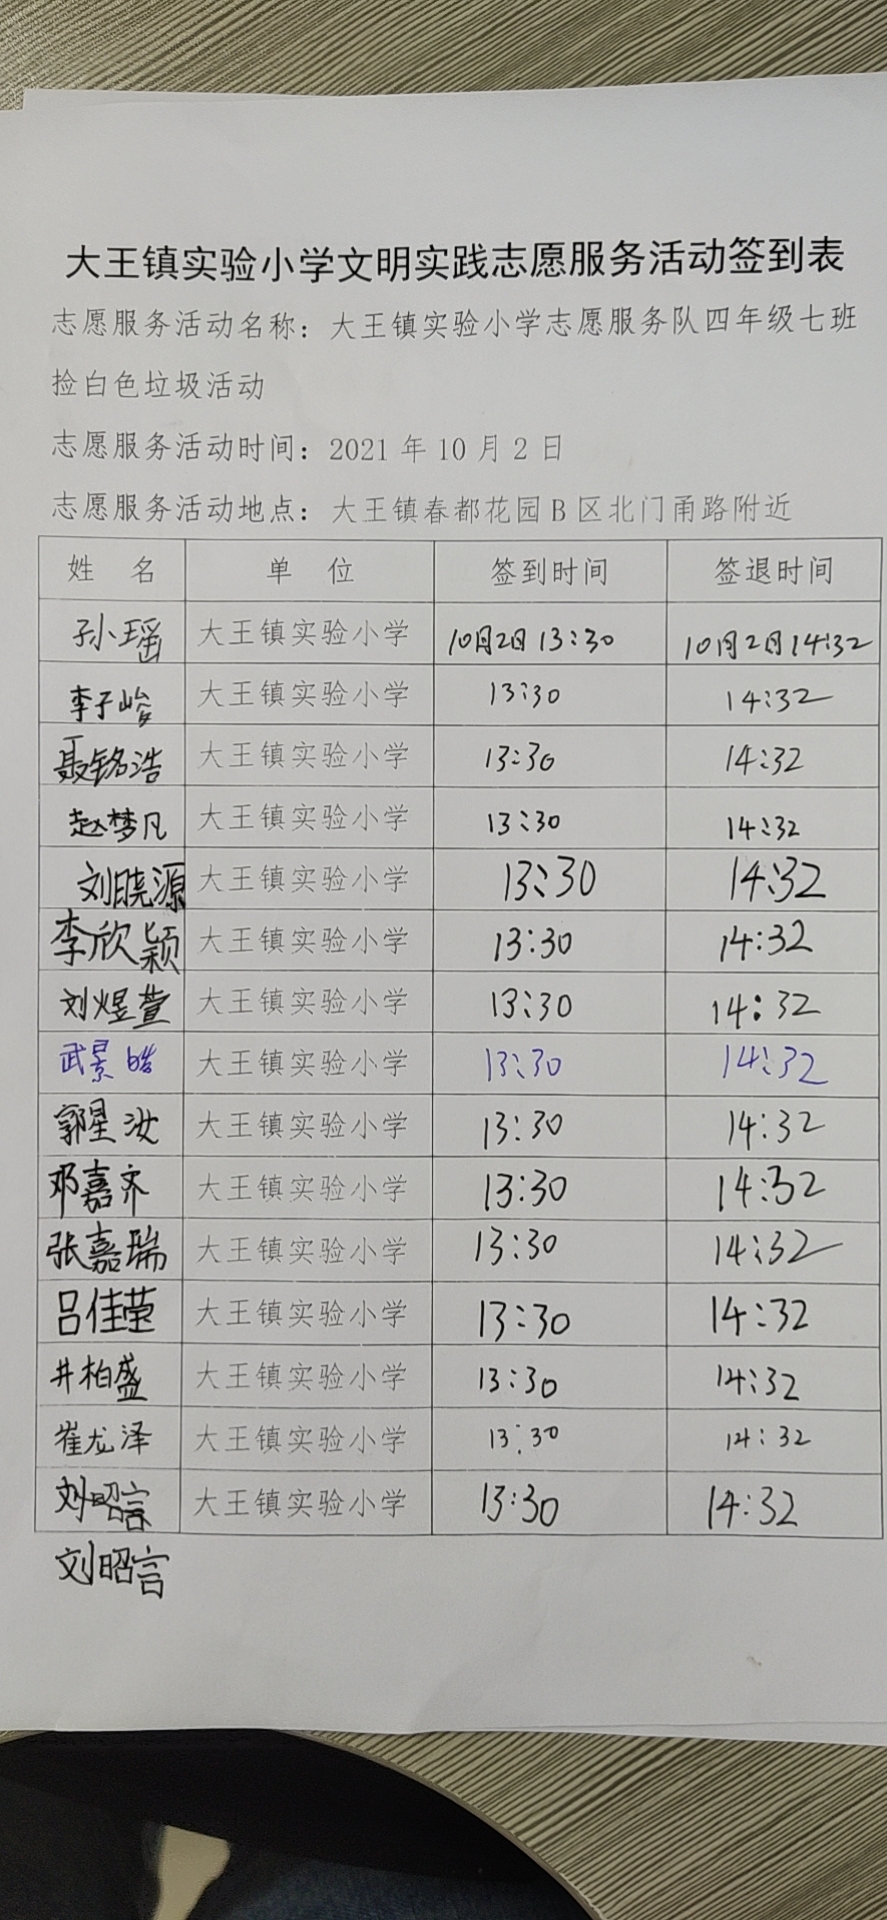 大王镇实验小学文明实践志愿服务活动签到表
志愿服务活动名称：大王镇实验小学志愿服务队四年级七班
捡白色垃圾活动
志愿服务活动时间：2021年10月2日
志愿服务活动地点：大王镇春都花园B区北门甬路附近
姓 名 单 位 签到时间 签退时间
孙小瑶 大王镇实验小学 10月2日13:30 10月2日14:32
李子峻 大王镇实验小学 13:30 14:32
聂铭浩 大王镇实验小学 13:30 14:32
赵梦凡 大王镇实验小学 13:30 14:32
刘晓源 大王镇实验小学 13:30 14:32
李欣颖 大王镇实验小学 13:30 14:32
刘煜萱 大王镇实验小学 13:30 14:32
武景皓 大王镇实验小学 13:30 14:32
郭星汝 大王镇实验小学 13:30 14:32
邓嘉齐 大王镇实验小学 13:30 14:32
张嘉瑞 大王镇实验小学 13:30 14:32
吕佳莹 大王镇实验小学 13:30 14:32
井柏盛 大王镇实验小学 13:30 14:32
崔龙泽 大王镇实验小学 13:30 14:32
刘昭言 大王镇实验小学 13:30 14:32
刘昭言